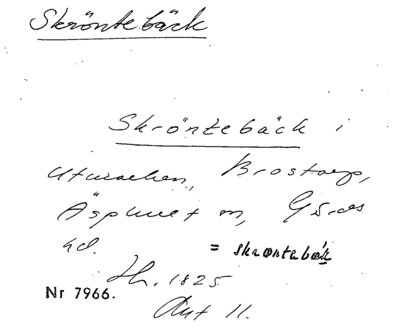 Skröntebäck
Skröntebäck i
utmarken, Brostorp,
Äsphult sn, Gärds
hd. = skrontebäk
Jh. 1825
Nr 7966.
Akt 11.